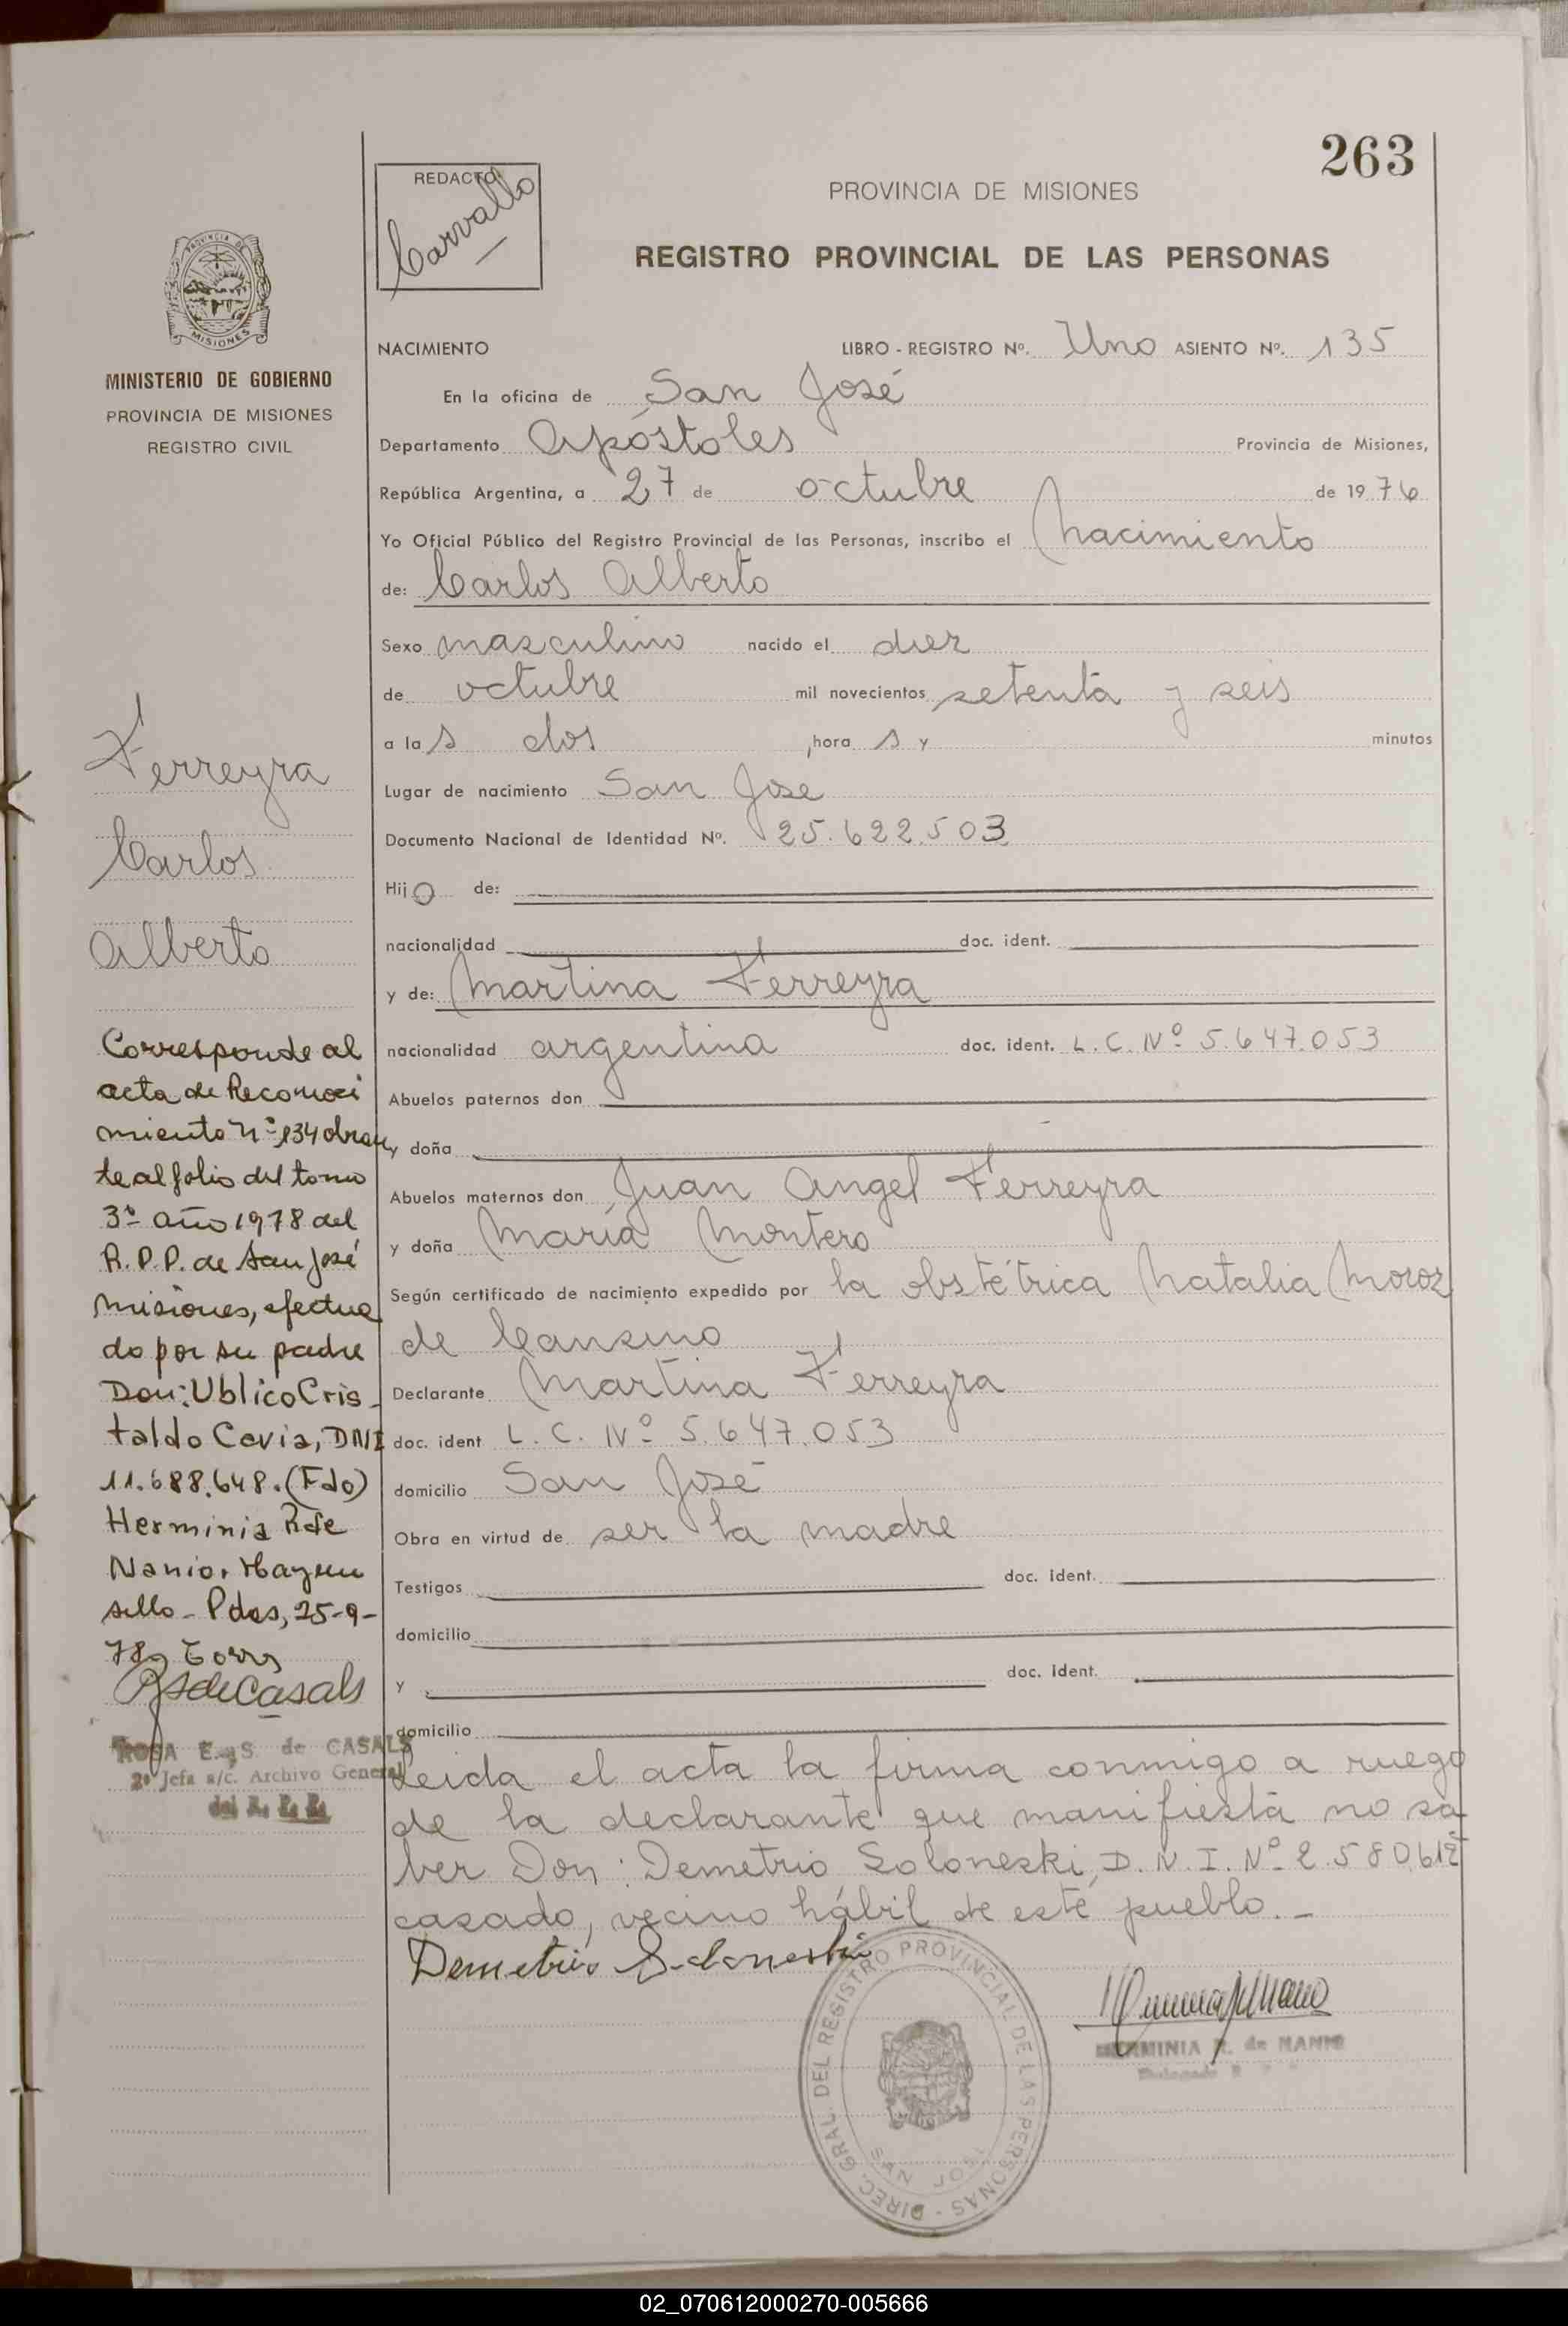 263
REDACTO
Carvallo
PROVINCIA DE MISIONES
REGISTRO PROVINCIAL DE LAS PERSONAS
PROVINCIA DE
MISIONES
MINISTERIO DE GOBIERNO
PROVINCIA DE MISIONES
REGISTRO CIVIL
NACIMIENTO LIBRO - REGISTRO Nº. Uno ASIENTO Nº. 135
En la oficina de San José
Departamento Apóstoles Provincia de Misiones,
República Argentina, a 27 de octubre de 1976
Yo Oficial Público del Registro Provincial de las Personas, inscribo el Nacimiento
de: Carlos Alberto
Sexo masculino nacido el diez
de octubre mil novecientos setenta y seis
a las dos hora s y minutos
Lugar de nacimiento San José
Documento Nacional de Identidad Nº. 25.622.503
Hijo de:
nacionalidad doc. ident.
y de: Martina Ferreyra
nacionalidad argentina doc. ident. L. C. Nº 5.647.053
Abuelos paternos don
y doña
Abuelos maternos don Juan Angel Ferreyra
y doña María Montero
Según certificado de nacimiento expedido por la obstétrica Natalia Moroz
de Cansino
Declarante Martina Ferreyra
doc. ident L. C. Nº 5.647.053
domicilio San José
Obra en virtud de ser la madre
Testigos doc. ident.
domicilio
y doc. ident.
domicilio
Leida el acta la firma conmigo a ruego
de la declarante que manifiesta no sa
ber Don: Demetrio Soloneski, D. N. I. Nº 2.580.612
casado, vecino hábil de este pueblo.-
Demetrio Soloneski
HERMINIA R. de NANIO
DIREC. GRAL. DEL REGISTRO PROVINCIAL DE LAS PERSONAS -
SAN JOSE
Ferreyra
Carlos
Alberto
Corresponde al
acta de Reconoci
miento Nº 134 obran
te al folio del tomo
3º año 1978 del
R.P.P. de San José
Misiones, efectua
do por su padre
Don: Ublico Cris
taldo Cavia, DNI
11.688.648. (Fdo)
Herminia R de
Nanio. Hay un
sello - Pdas, 25-9-
78
RSdeCasals
ROSA E. S. de CASALS
2º Jefa a/c. Archivo General
del R. P. P.
02_070612000270-005666